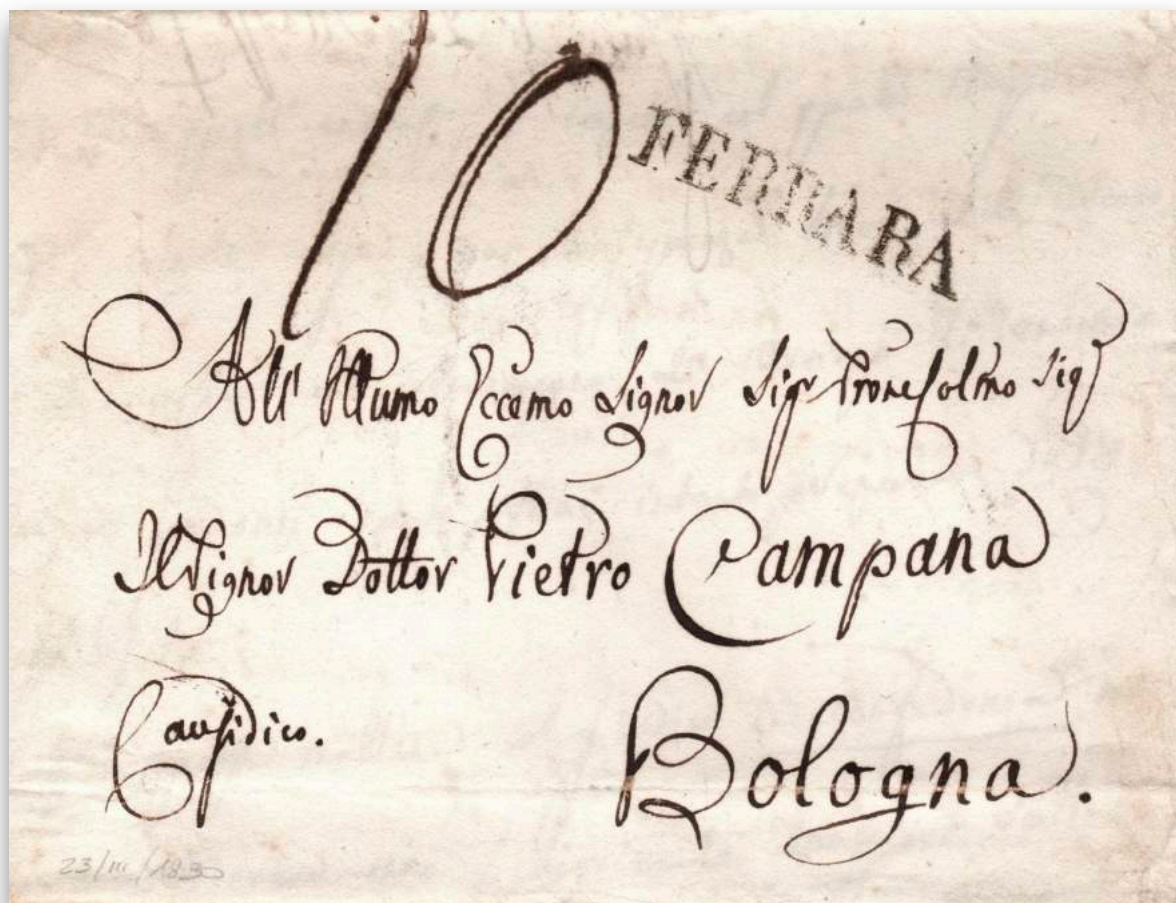 10
FERRARA
All' Illumo Eccemo Signor Sigr Prone Colmo Sigr
Il Signor Dottor Pietro Campana
Causidico.
Bologna.
23/III/1830